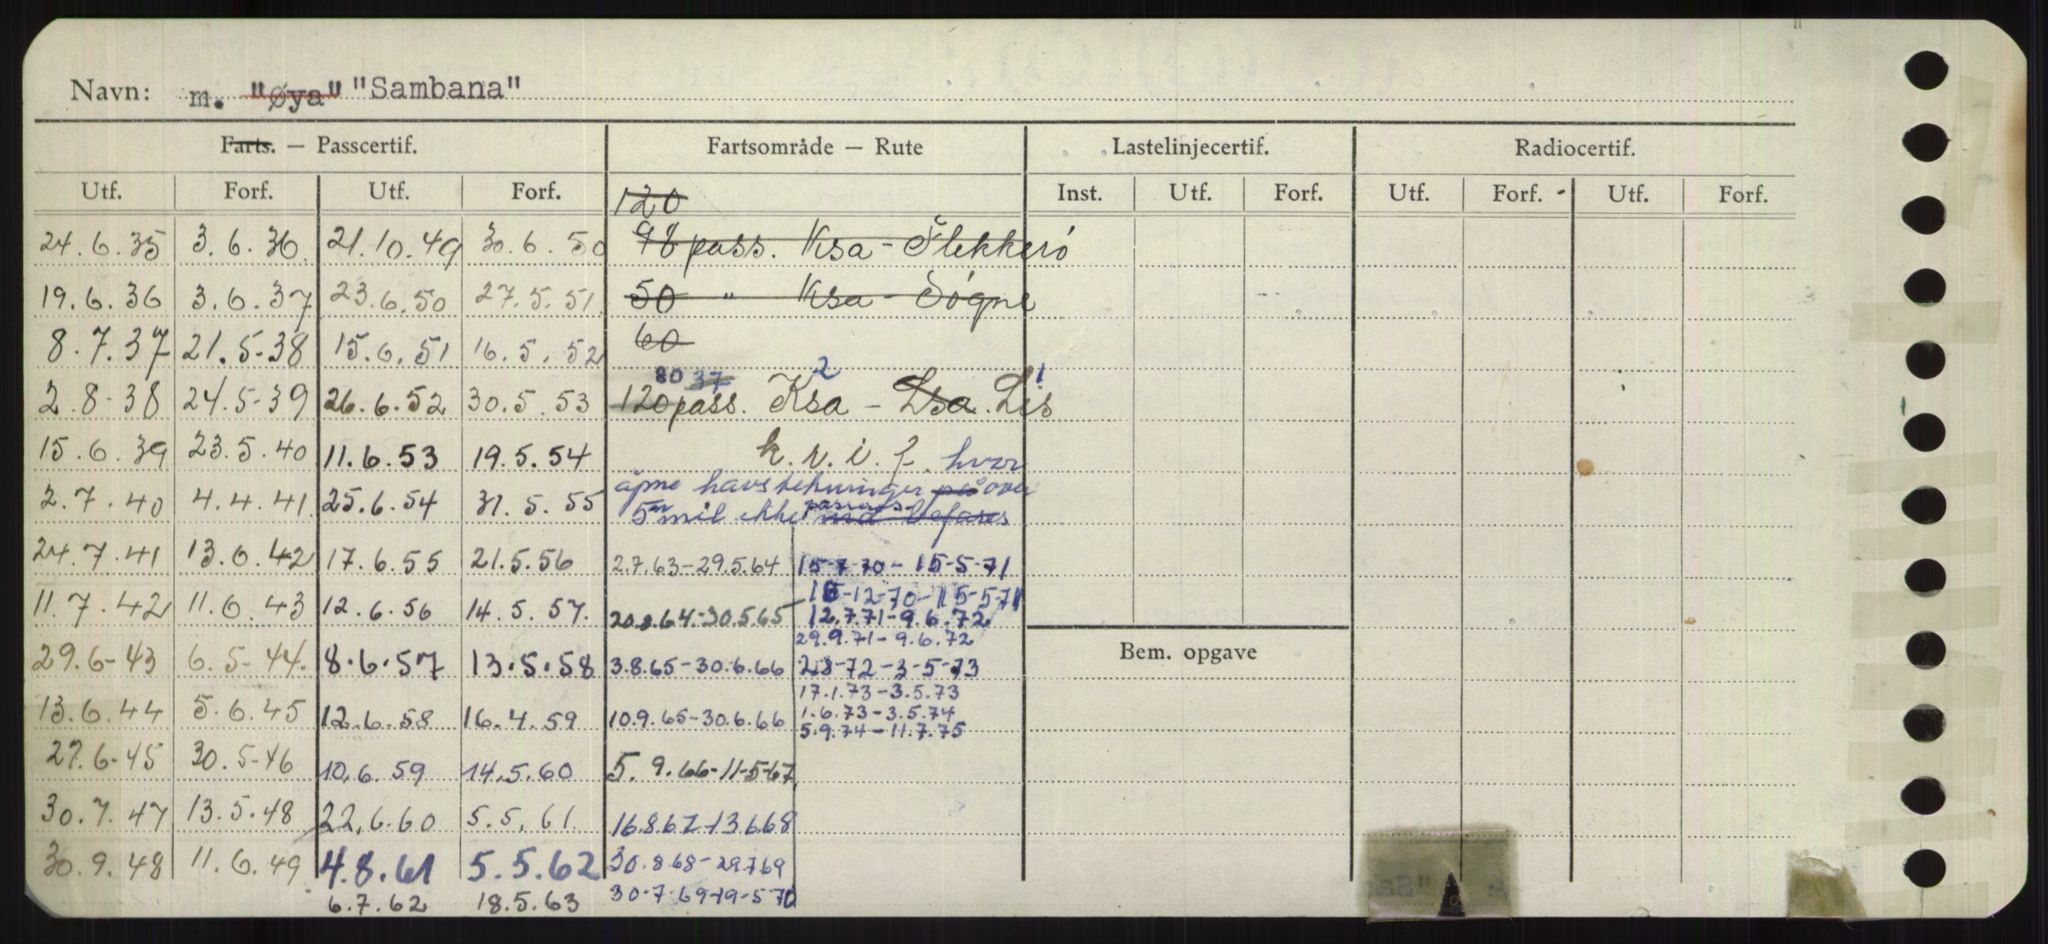 Navn: m. "Øya" "Sambana"
Farts. — Passcertif. Fartsområde — Rute Lastelinjecertif. Radiocertif.
Utf. Forf. Utf. Forf. 120 Inst. Utf. Forf. Utf. Forf. Utf. Forf.
24.6.35 3.6.36 21.10.49 30.6.50 98 pass. Ksa - Flekkerö
19.6.36 3.6.37 23.6.50 27.5.51 50 " Ksa - Søgne
8.7.37 21.5-38 15.6.51 16.5.52 60
80 37 2 1
2.8-38 24.5-39 26.6.52 30.5.53 120 pass. Ksa - Lsa. Lis
15.6.39 23.5.40 11.6.53 19.5.54 k.r.i.f. hvor
2.7.40 4.4.41 25.6.54 31.5.55 åpne havstrekninger på over
5 mil ikke passeres må befares
24.7.41 13.6.42 17.6.55 21.5.56 2.7.63-29.5.64 15-7-70-15-5-71
15-12-70-15-5-71
11.7.42 11.6.43 12.6.56 14.5.57. 20.8.64-30.5.65 12.7.71-9.6.72
29.9.71-9.6.72
29.6-43 6.5-44. 8.6.57 13.5.58 3.8.65-30.6.66 2.8-72-3-5-73
17.1.73-3.5.73
13.6.44 5.6.45 12.6.58 16.4.59 10.9.65-30.6.66 1.6.73-3.5.74
5.9.74-11.7.75
27.6-45 30.5-46 10.6.59 14.5.60 5.9.66-11-5-67
30.7.47 13.5.48 22.6.60 5.5.61 16.8.67-13.6.68
30.9.48 11.6.49 4.8.61 5.5.62 30.8.68-29.7.69
6.7.62 18.5.63 30-7-69-19-5-70
Bem. opgave